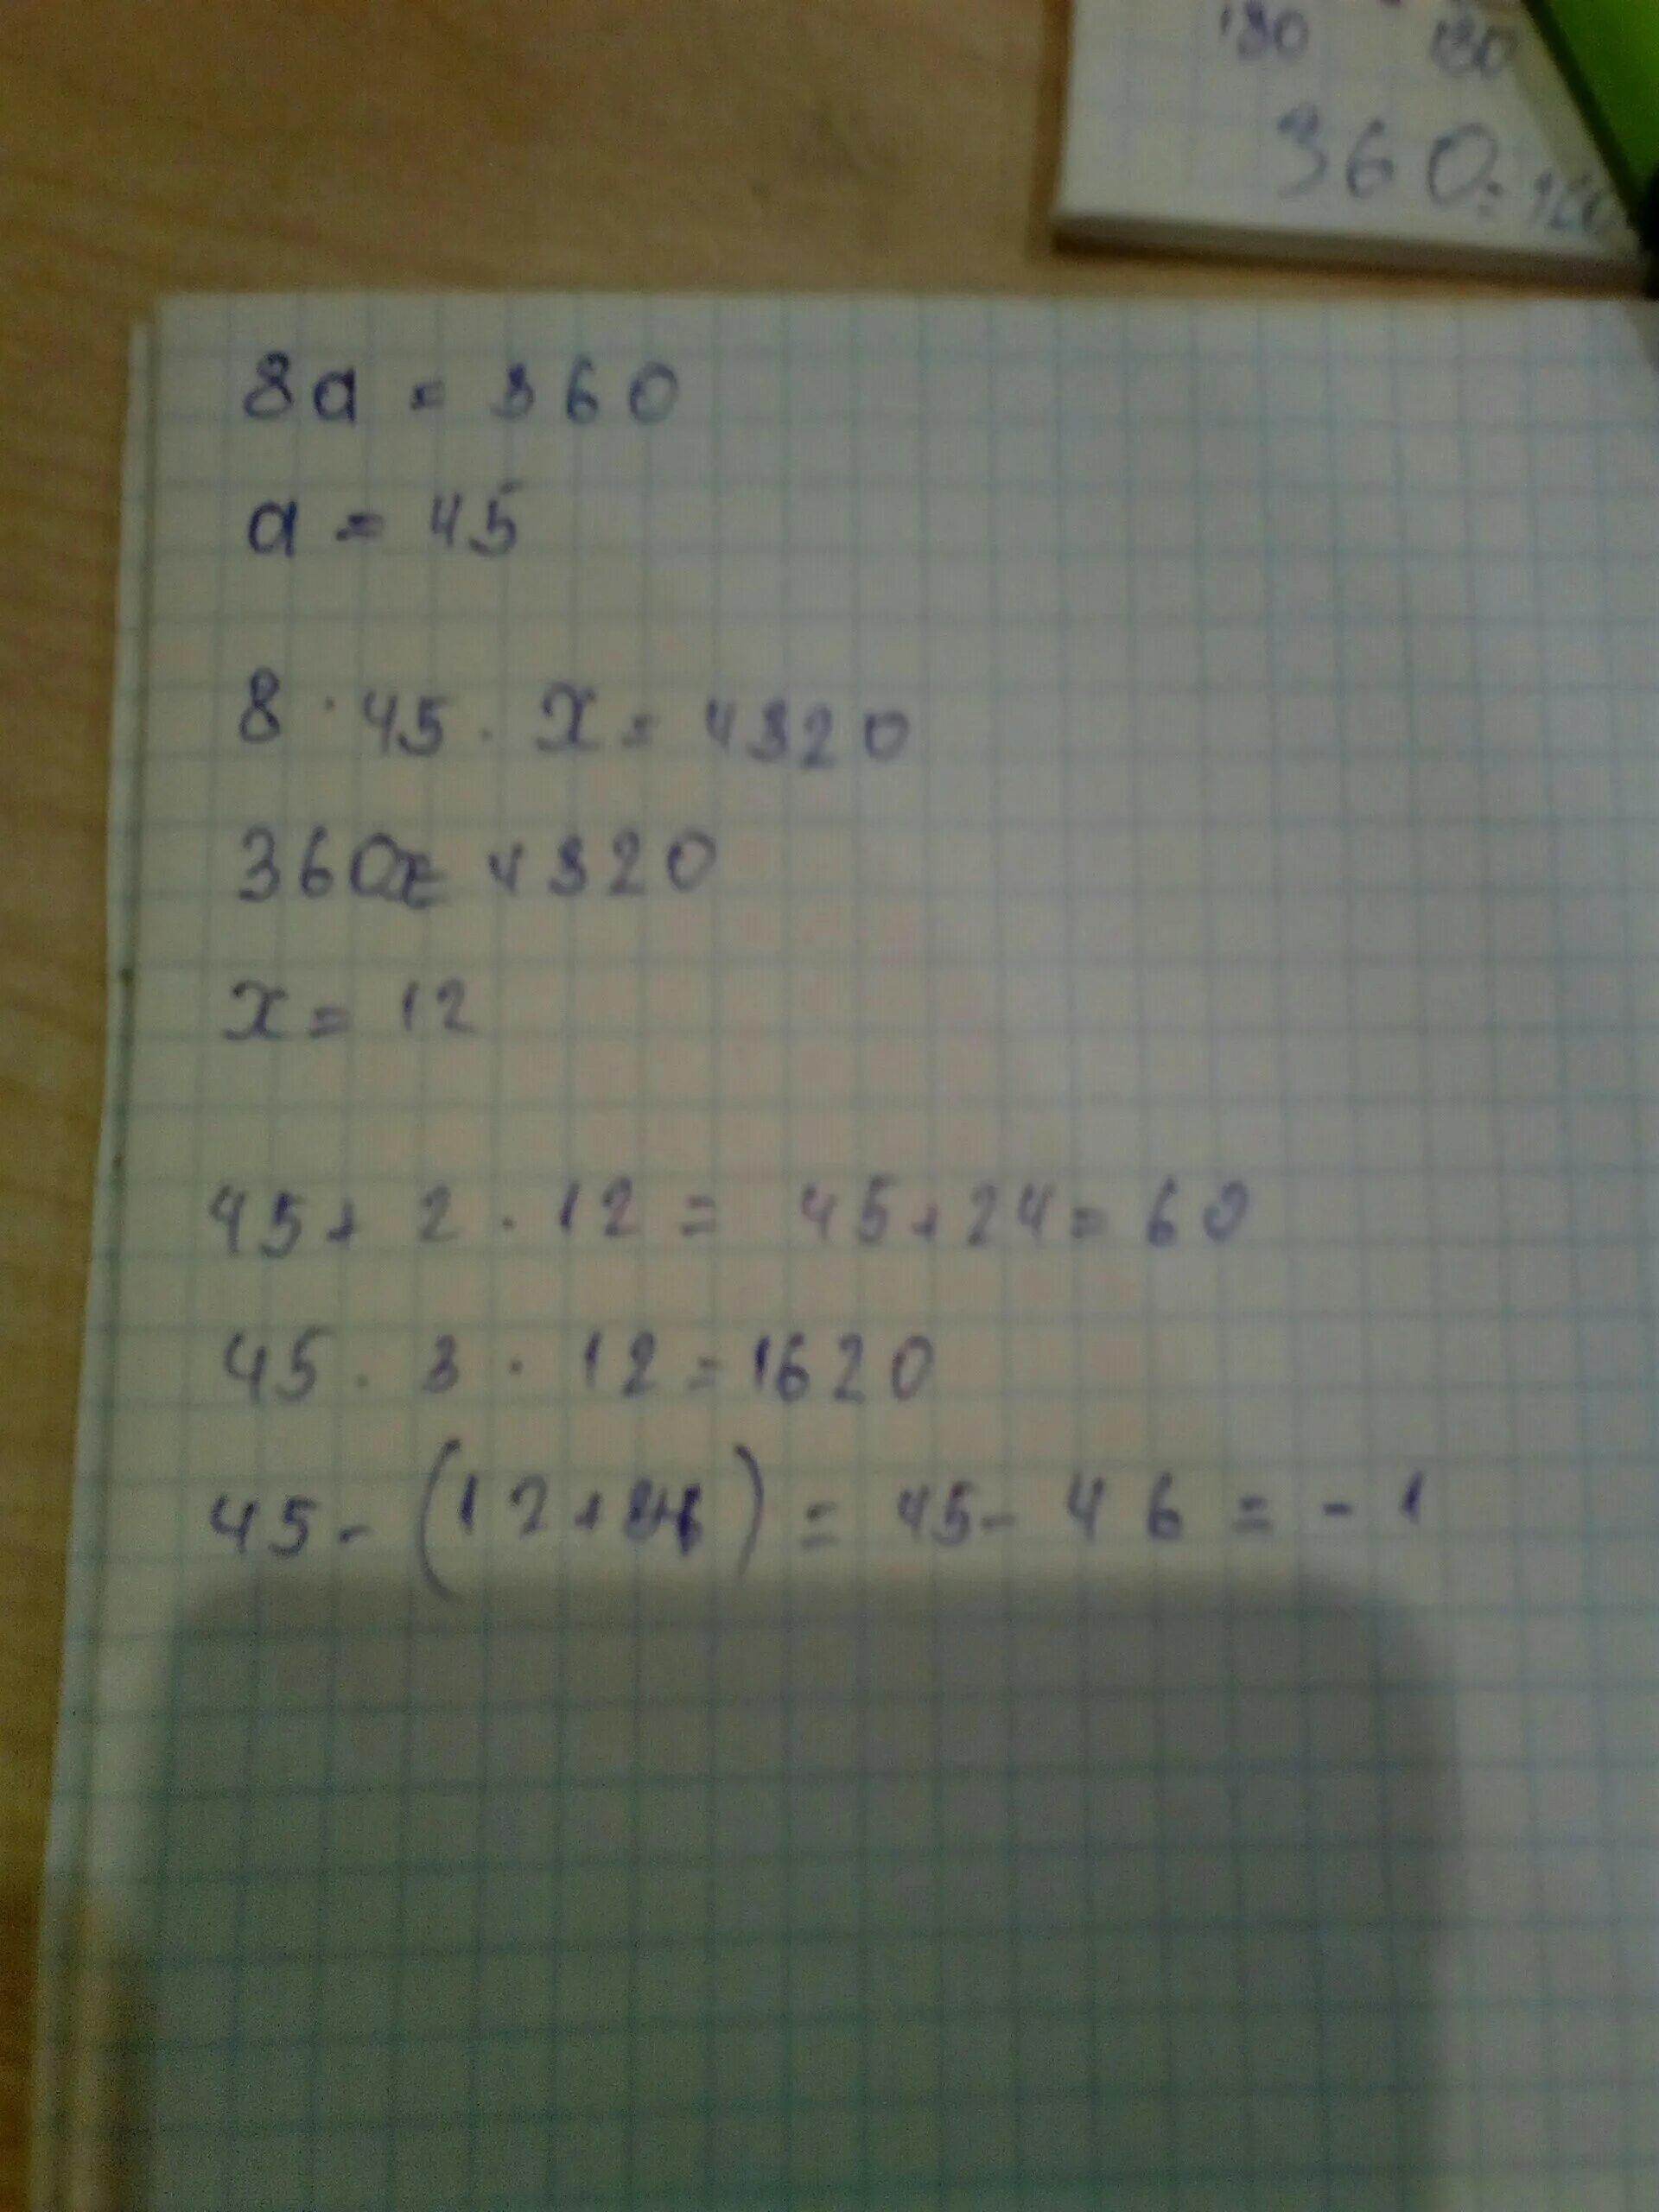 180 180
360:
8a = 360
a = 45
8 · 45 · x = 4320
360x = 4320
x = 12
45 + 2 · 12 = 45 + 24 = 60
45 · 3 · 12 = 1620
45 - (12 + ) = 45 - 46 = - 1